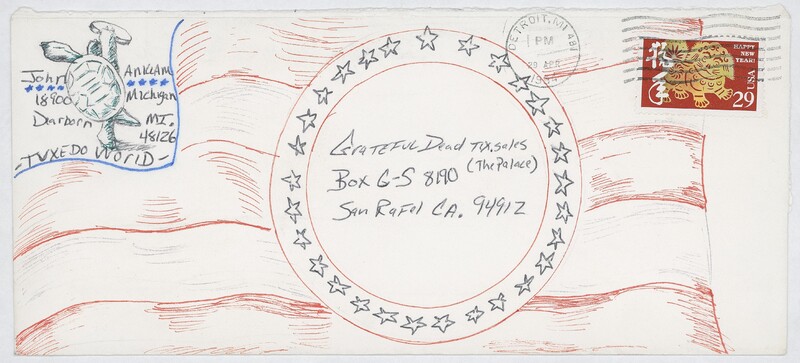 John Anklam
18900 Michigan
Dearborn MI.
48126
-TUXEDO WORLD-
GRATEFUL Dead TIX.sales
(The Palace)
Box G-S 8190
San Rafel CA. 94912
DETROIT, MI 481
PM
29 APR
1994
HAPPY
NEW
YEAR!
USA
29